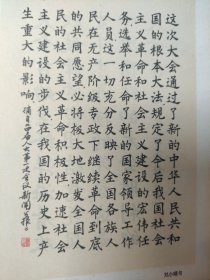 这次大会通过了新的中华人民共和
国的根本大法规定了今后我国社会
主义革命和社会主义建设的宏伟任
务选举和任命了新的国家领导工作
人员这一切充分反映了全国各族人
民在无产阶级专政下继续革命到底
的共同愿望必将极大地激发全国人
民的社会主义革命积极性加速社会
主义建设的步伐在我国的历史上产
生重大的影响
摘自四届人大第一次会议新闻公报